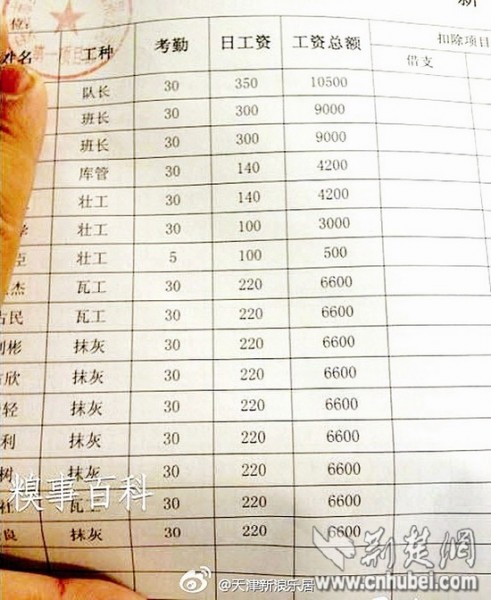 位:
扣除项目
姓名 工种 考勤 日工资 工资总额 借支
队长 30 350 10500
班长 30 300 9000
班长 30 300 9000
库管 30 140 4200
壮工 30 140 4200
壮工 30 100 3000
壮工 5 100 500
杰 瓦工 30 220 6600
民 瓦工 30 220 6600
彬 抹灰 30 220 6600
欣 抹灰 30 220 6600
轻 抹灰 30 220 6600
利 抹灰 30 220 6600
树 抹灰 30 220 6600
瓦工 30 220 6600
良 抹灰 30 220 6600
糗事百科
荆楚网
www.cnhubei.com
@天津新浪乐居